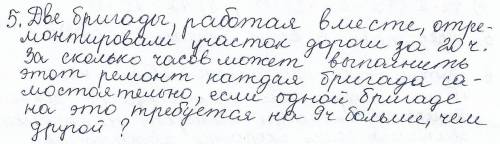 5. Две бригады, работая вместе, отре-
монтировали участок дороги за 20 ч.
За сколько часов может выполнить
этот ремонт каждая бригада са-
мостоятельно, если одной бригаде
на это требуется на 9ч больше, чем
другой?